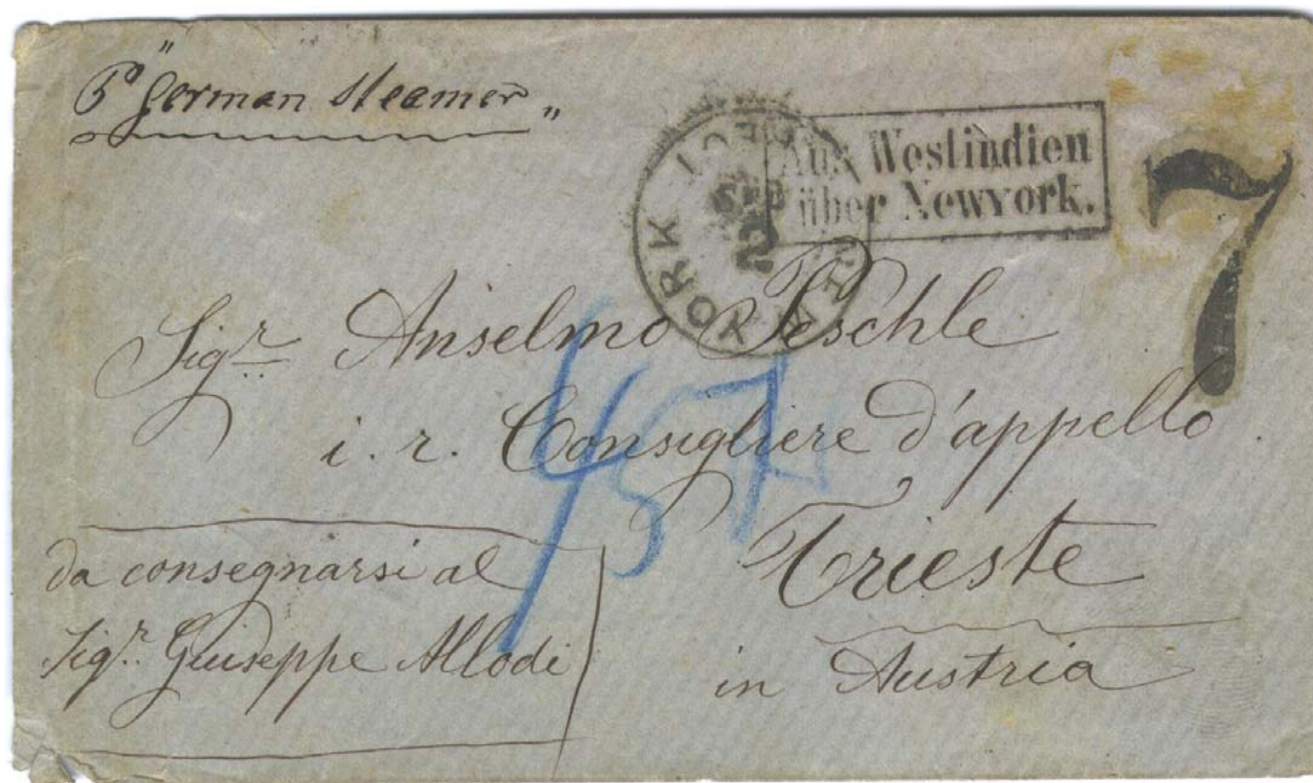 P "German Steamer"
NEW YORK
SEP
2
Aus Westindien
über Newyork.
7
Sigr. Anselmo Peschle
i. r. Consigliere d'appello
Trieste
in Austria
da consegnarsi al
Sigr. Giuseppe Allodi